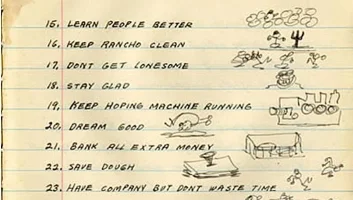 15. LEARN PEOPLE BETTER
16. KEEP RANCHO CLEAN
17. DONT GET LONESOME
18. STAY GLAD
19. KEEP HOPING MACHINE RUNNING
20. DREAM GOOD
21. BANK ALL EXTRA MONEY
22. SAVE DOUGH
23. HAVE COMPANY BUT DONT WASTE TIME